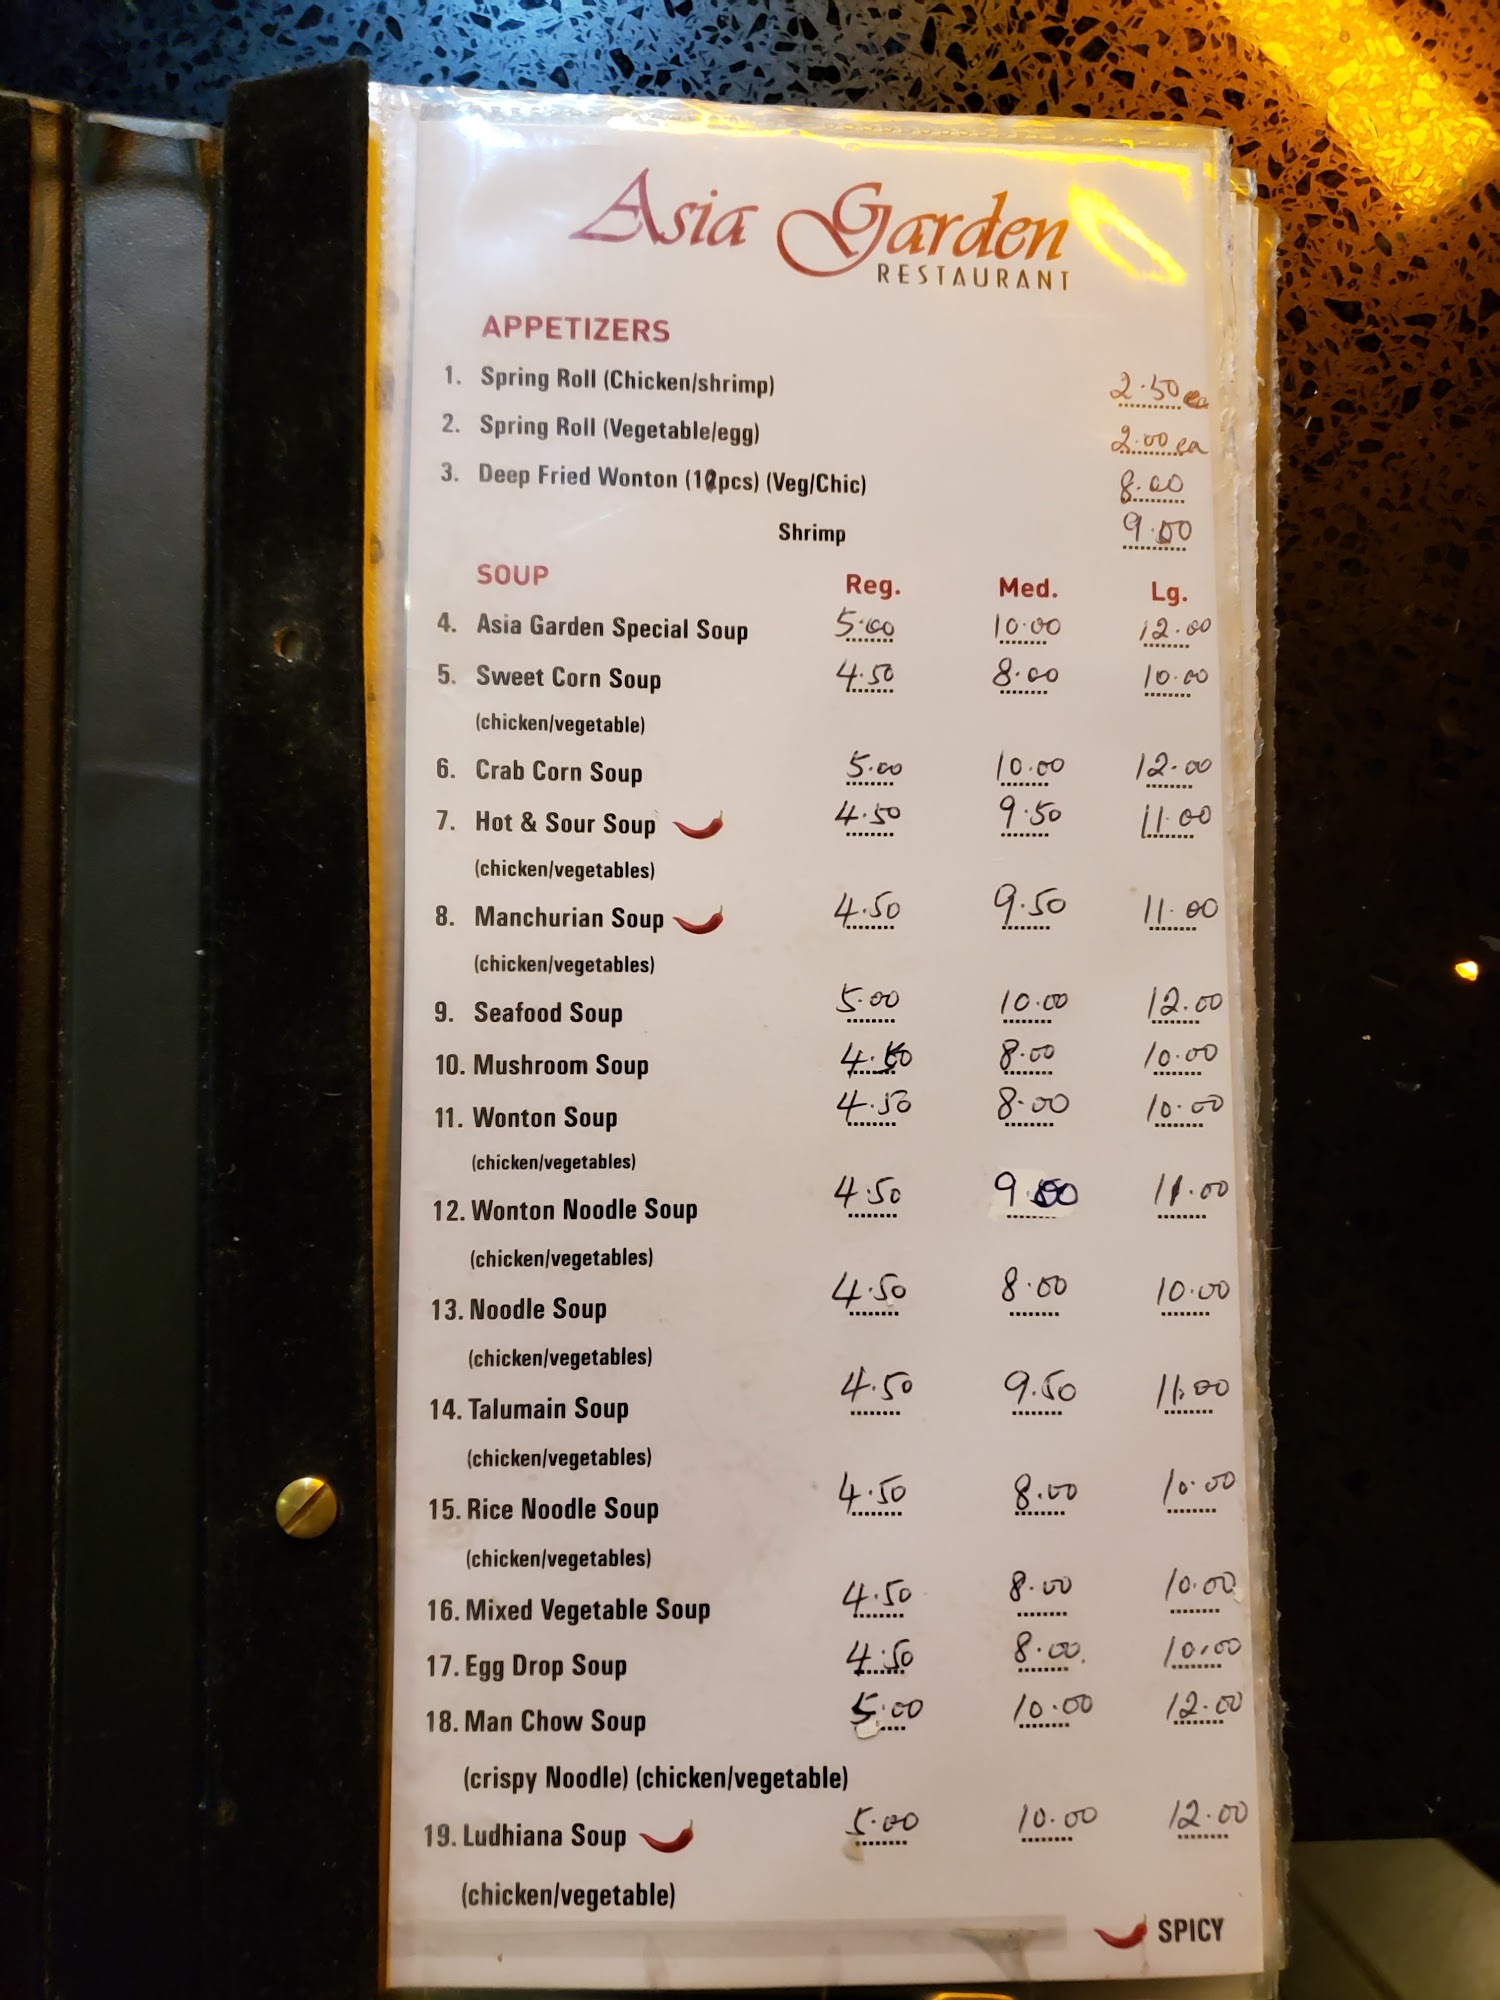 Asia Garden
RESTAURANT
APPETIZERS
1. Spring Roll (Chicken/shrimp) 2.50 ea
2. Spring Roll (Vegetable/egg) 2.00 ea
3. Deep Fried Wonton (12pcs) (Veg/Chic) 8.00
Shrimp 9.00
SOUP Reg. Med. Lg.
4. Asia Garden Special Soup 5.00 10.00 12.00
5. Sweet Corn Soup 4.50 8.00 10.00
(chicken/vegetable)
6. Crab Corn Soup 5.00 10.00 12.00
7. Hot & Sour Soup 4.50 9.50 11.00
(chicken/vegetables)
8. Manchurian Soup 4.50 9.50 11.00
(chicken/vegetables)
9. Seafood Soup 5.00 10.00 12.00
10. Mushroom Soup 4.50 8.00 10.00
11. Wonton Soup 4.50 8.00 10.00
(chicken/vegetables)
12. Wonton Noodle Soup 4.50 11.00
(chicken/vegetables)
13. Noodle Soup 4.50 8.00 10.00
(chicken/vegetables)
14. Talumain Soup 4.50 9.50 11.00
(chicken/vegetables)
15. Rice Noodle Soup 4.50 8.00 10.00
(chicken/vegetables)
16. Mixed Vegetable Soup 4.50 8.00 10.00
17. Egg Drop Soup 4.50 8.00 10.00
18. Man Chow Soup 5.00 10.00 12.00
(crispy Noodle) (chicken/vegetable)
19. Ludhiana Soup 5.00 10.00 12.00
(chicken/vegetable)
SPICY